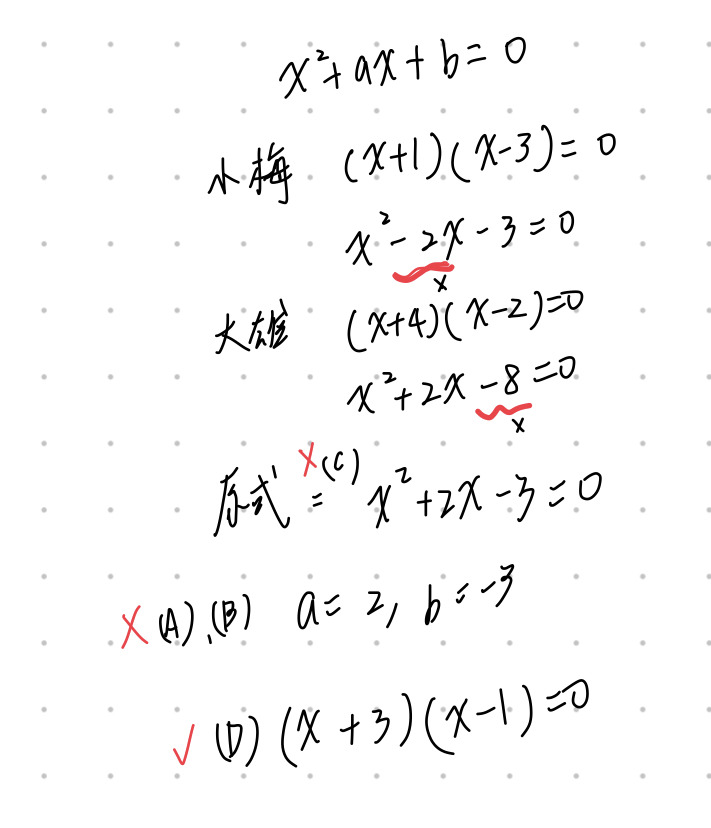 x²+ax+b=0
小梅 (x+1)(x-3)=0
x²-2x-3=0
x
大雄 (x+4)(x-2)=0
x²+2x-8=0
x
原式 = x(C) x²+2x-3=0
x (A),(B) a=2, b=-3
✓ (D) (x+3)(x-1)=0